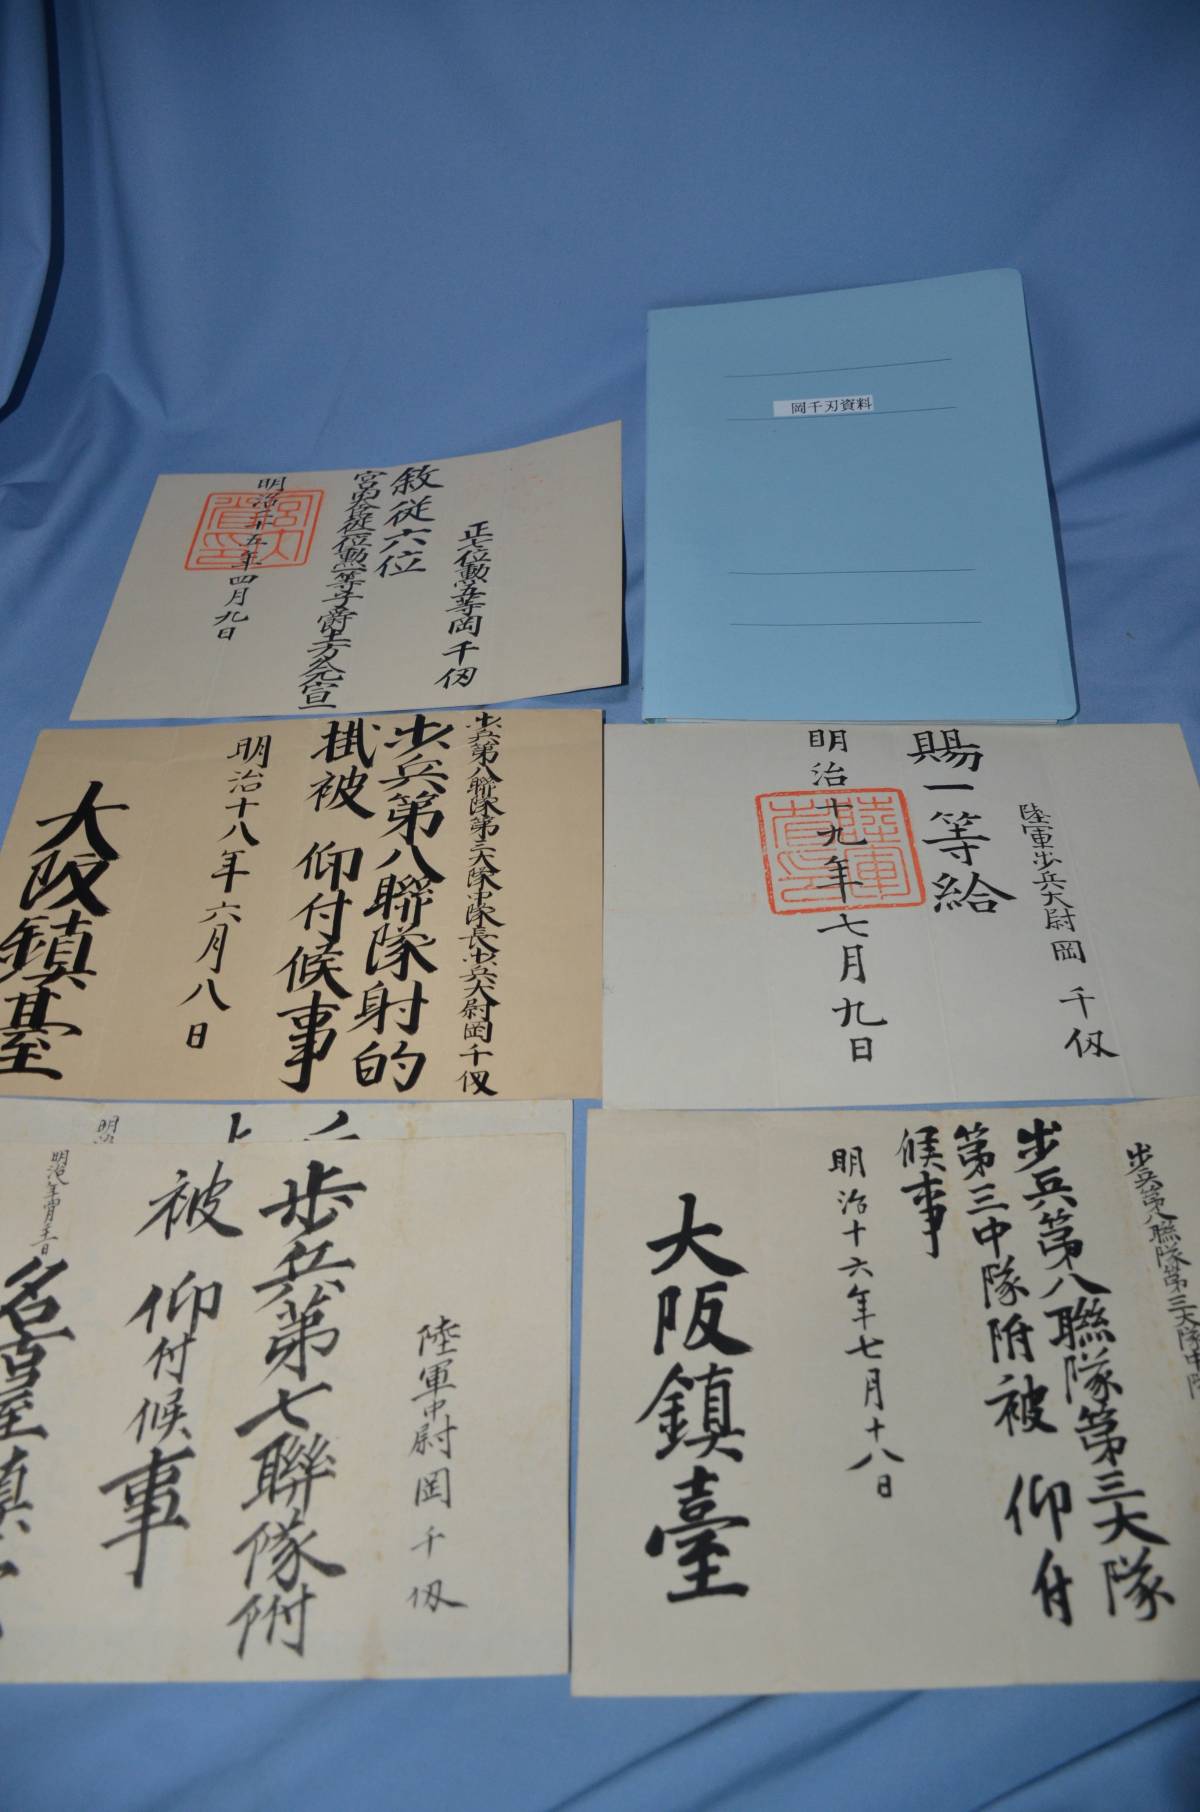 岡千刃資料
正七位勲五等岡千仭
敘従六位
宮内大臣従二位勲一等子爵土方久元宣
明治廿五年四月九日
陸軍歩兵大尉 岡 千仭
賜一等給
明治十九年七月九日
陸軍省印
歩兵第八聯隊第三大隊中隊長歩兵大尉岡千仭
歩兵第八聯隊射的
掛被 仰付候事
明治十八年六月八日
大阪鎮臺
歩兵第八聯隊第三大隊中隊
歩兵第八聯隊第三大隊
第三中隊附被 仰付
候事
明治十六年七月十八日
大阪鎮臺
陸軍中尉 岡 千仭
歩兵第七聯隊附
被 仰付候事
名古屋鎮
明治